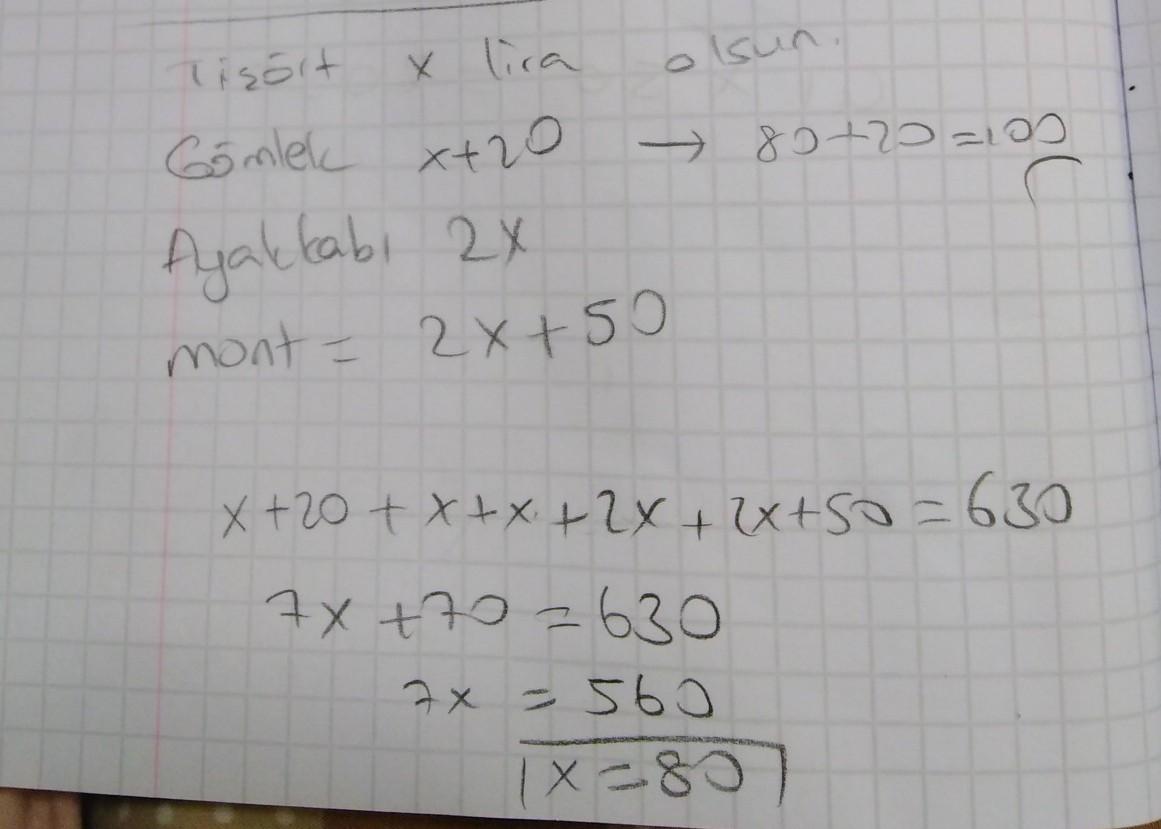 Tişört x lira olsun.
Gömlek x+20 → 80+20=100
Ayakkabı 2x
mont = 2x+50
x+20+x+x+2x+2x+50=630
7x+70=630
7x=560
x=80